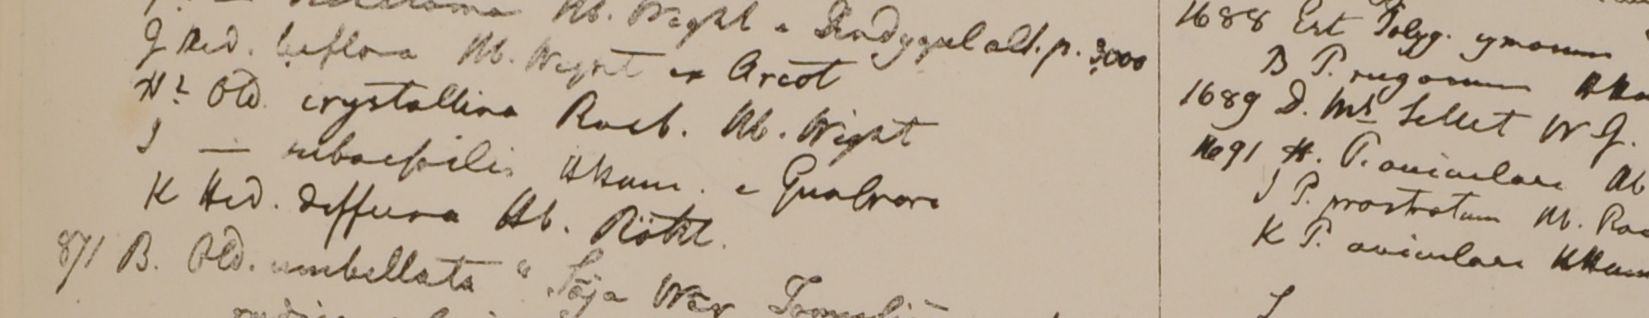 Hb. Wight e Dindygul alt. p. 3000
G Hed. biflora Hb. Wight ex Arcot
H 2 Old. crystallina Roxb. Hb. Wight
J — subsessilis HHam. e Gualpara
K Hed. diffusa Hb. Röttl.
871 B. Old. umbellata "Saja Wer
1688 Est Polyg. cymosum
B P. rugosum HHam
1689 D. Mt Sillet W G.
1691 H. P. aviculare Hb
J P. prostratum Hb. Rox
K P. aviculare HHam
L